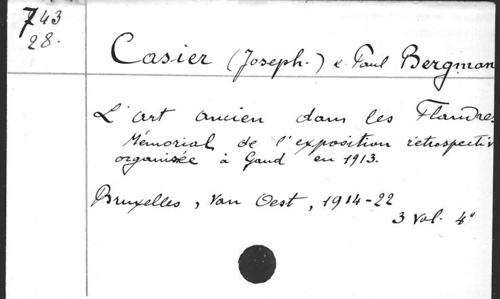 743
28.
Casier (Joseph.) & Paul Bergman
L'art ancien dans les Flandres
Mémorial de l'exposition rétrospectiv
organisée à Gand en 1913.
Bruxelles, Van Oest, 1914-22
3 vol. 4°